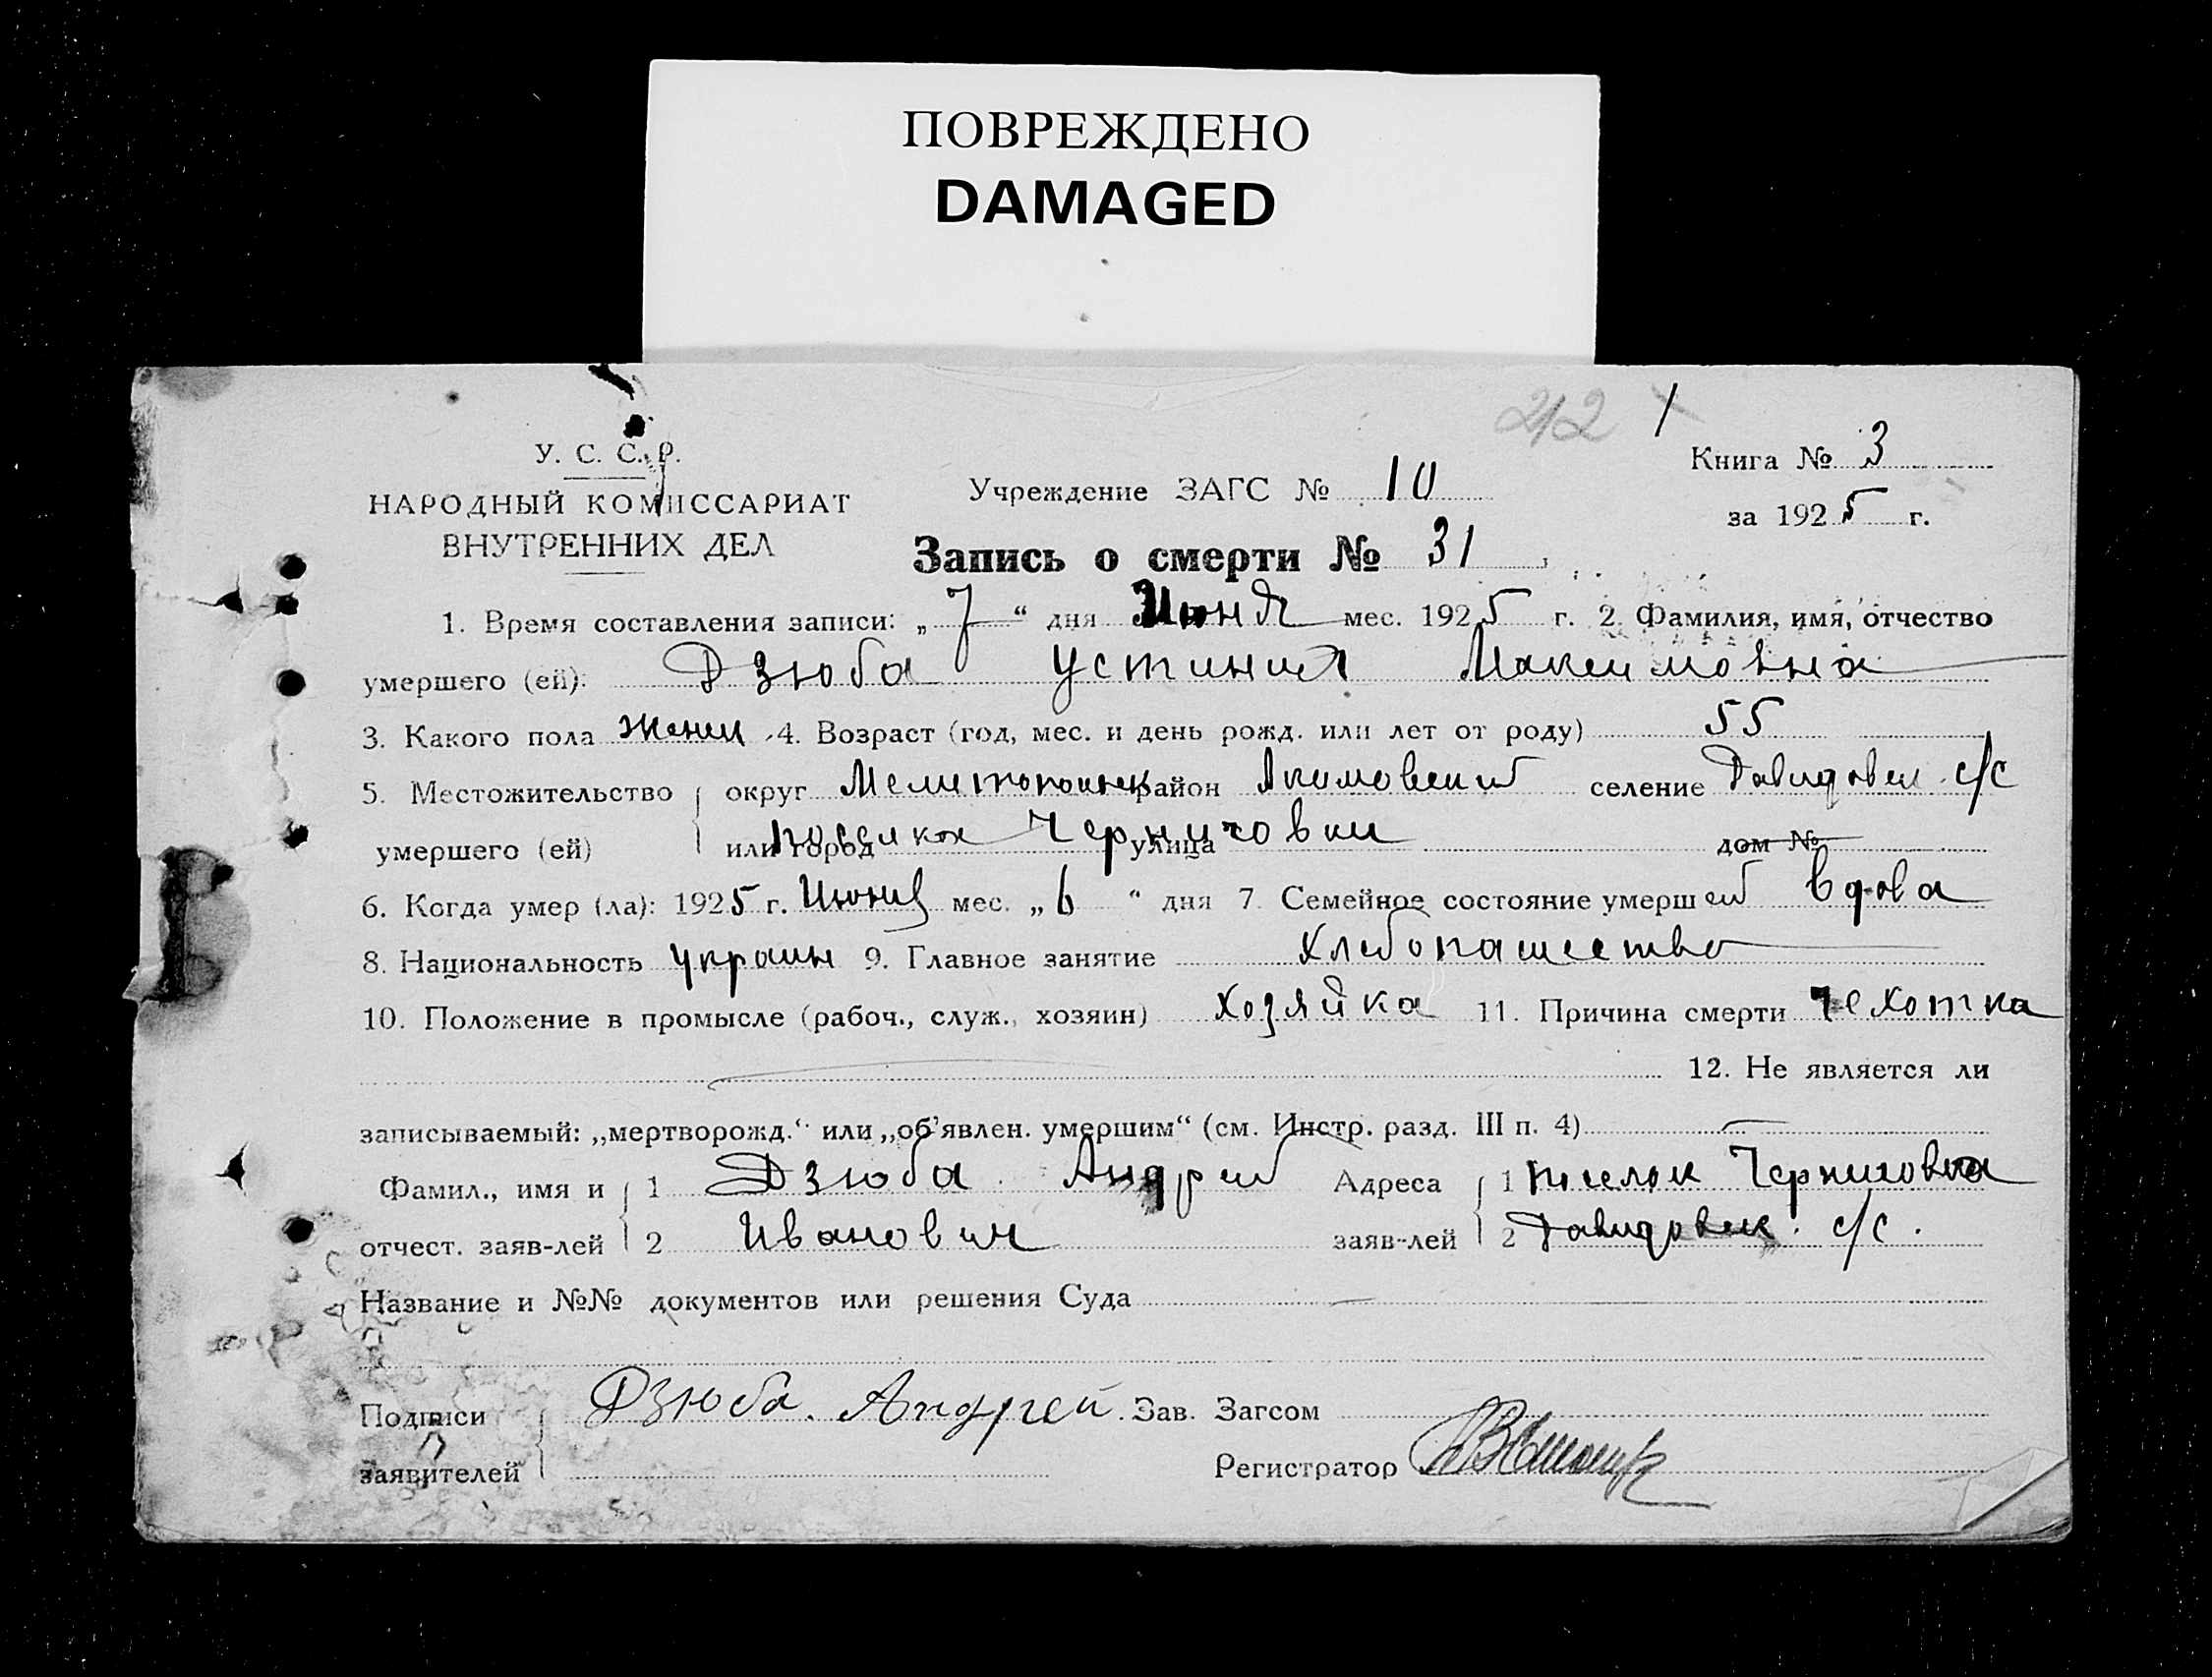 ПОВРЕЖДЕНО
DAMAGED
212 1
У. С. С. Р.
НАРОДНЫЙ КОМИССАРИАТ
ВНУТРЕННИХ ДЕЛ
Учреждение ЗАГС № 10
Книга № 3
за 1925 г.
Запись о смерти № 31
1. Время составления записи: „7“ дня Июня мес. 1925 г. 2. Фамилия, имя, отчество
умершего (ей): Дзюба Устиния Максимовна
3. Какого пола женск 4. Возраст (год, мес. и день рожд. или лет от роду) 55
5. Местожительство округ Мелитопольск район Акимовский селение Давидовск с/с
умершего (ей) или город поселка Черниговки улица дом №
6. Когда умер (ла): 1925 г. Июня мес. „6“ дня 7 Семейное состояние умершей вдова
8. Национальность украин 9. Главное занятие Хлебопашество
10. Положение в промысле (рабоч., служ., хозяин) Хозяйка 11. Причина смерти чехотка
12. Не является ли
записываемый: „мертворожд.“ или „об’явлен. умершим“ (см. Инстр. разд. III п. 4)
Фамил., имя и 1 Дзюба Андрей Адреса 1 поселок Черниговка
отчест. заяв-лей 2 Иванович заяв-лей 2 Давидовск. с/с.
Название и №№ документов или решения Суда
Подписи Дзюба. Андрей. Зав. Загсом
заявителей Регистратор